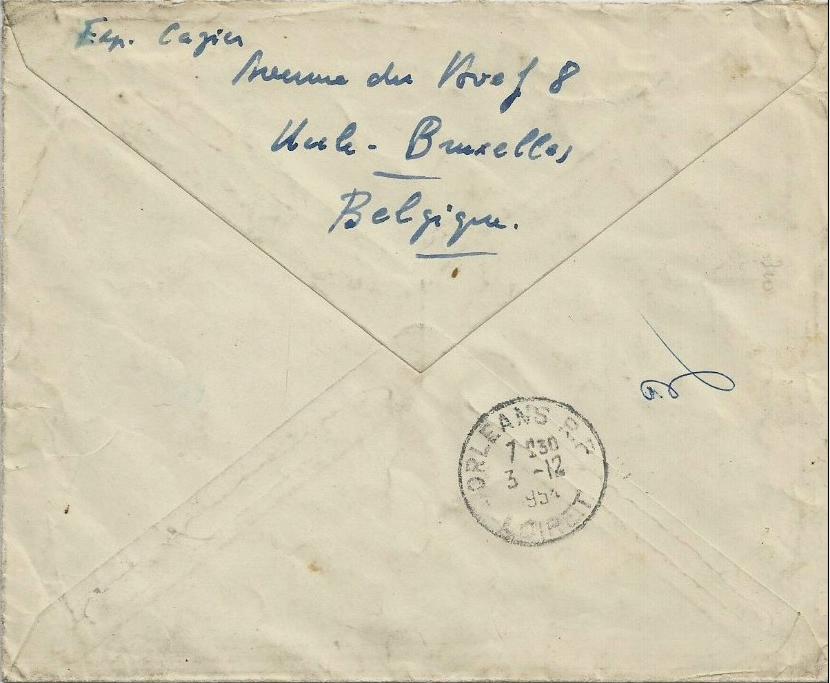 Exp. Cazier
Avenue du Hoef 8
Uccle - Bruxelles
Belgique.
ORLEANS R.P.
7 H30
3 -12
1954
LOIRET